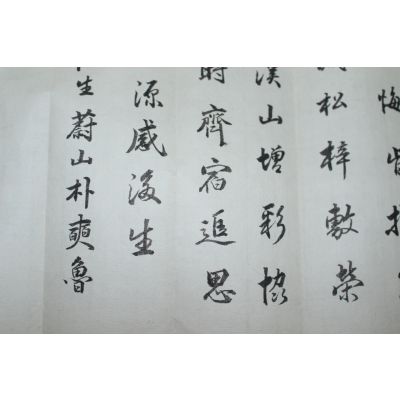 悔
松梓敷榮
溪山增彩
時齊宿追思
源感後生
生蔚山朴奭魯